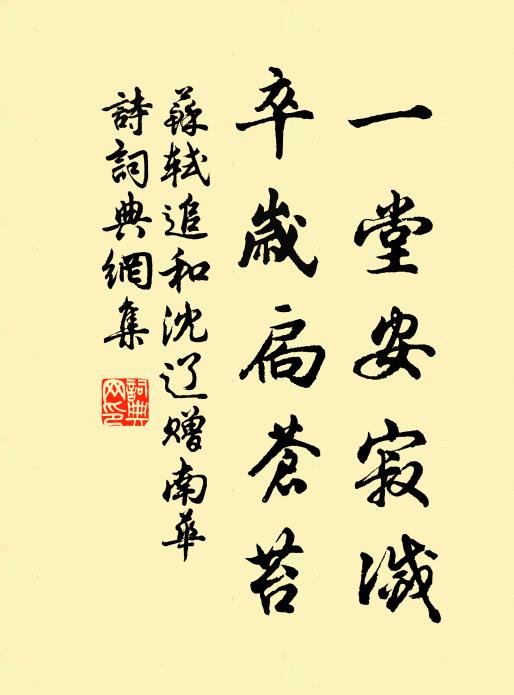 一堂安寂滅
卒歲扃蒼苔
蘇軾追和沈辽赠南華
詩詞典網集
詞典網印